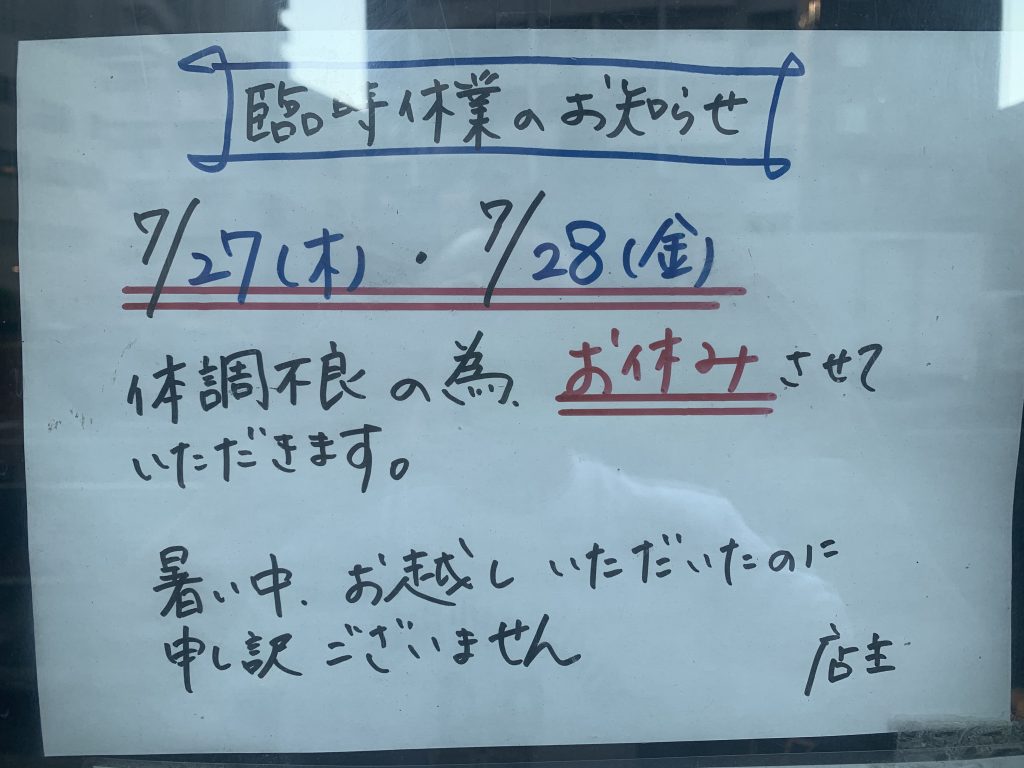 臨時休業のお知らせ
7/27(木)・7/28(金)
体調不良の為、お休みさせて
いただきます。
暑い中、お越しいただいたのに
申し訳ございません
店主